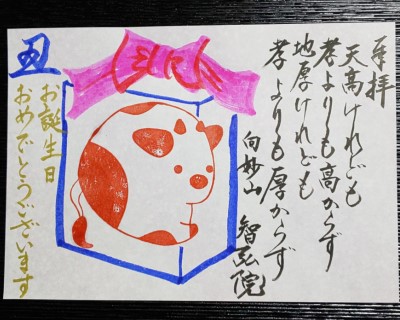 奉拝
天高けれども
孝よりも高からず
地厚けれども
孝よりも厚からず
向妙山
智弘院
丑
お誕生日
おめでとうございます